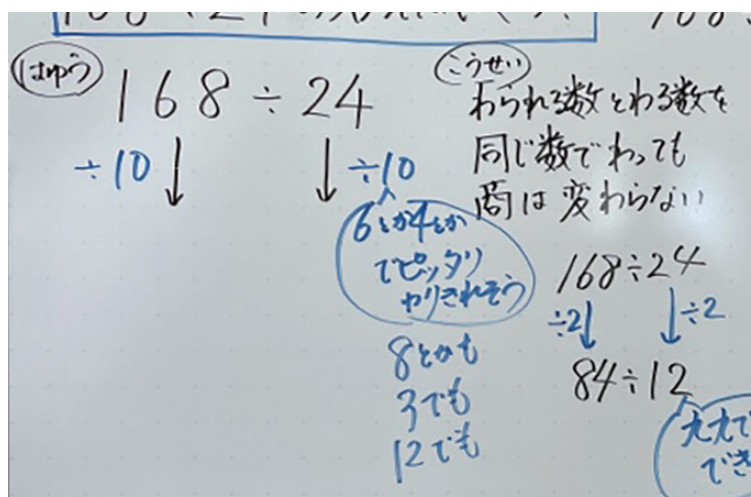 はゆう
168÷24
÷10
÷10
6とか4とか
でピッタリ
わりきれそう
8とかも
3でも
12でも
こうせい
わられる数とわる数を
同じ数でわっても
商は変わらない
168÷24
÷2
÷2
84÷12
九九で
でき